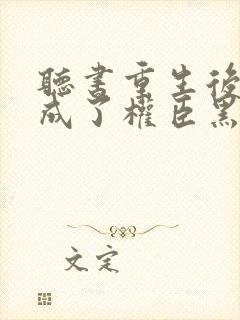 聽書重生後
成了權臣黑
文定